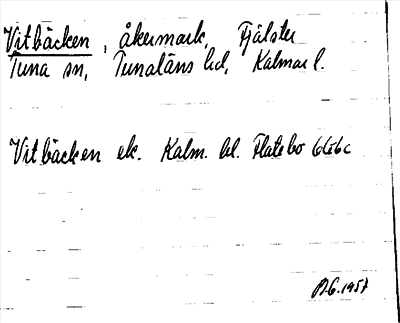 Vitbäcken, åkermark, Fjälster
Tuna sn, Tunaläns hd, Kalmar l.
Vitbäcken ek. Kalm. bl. Flatebo 6d6c